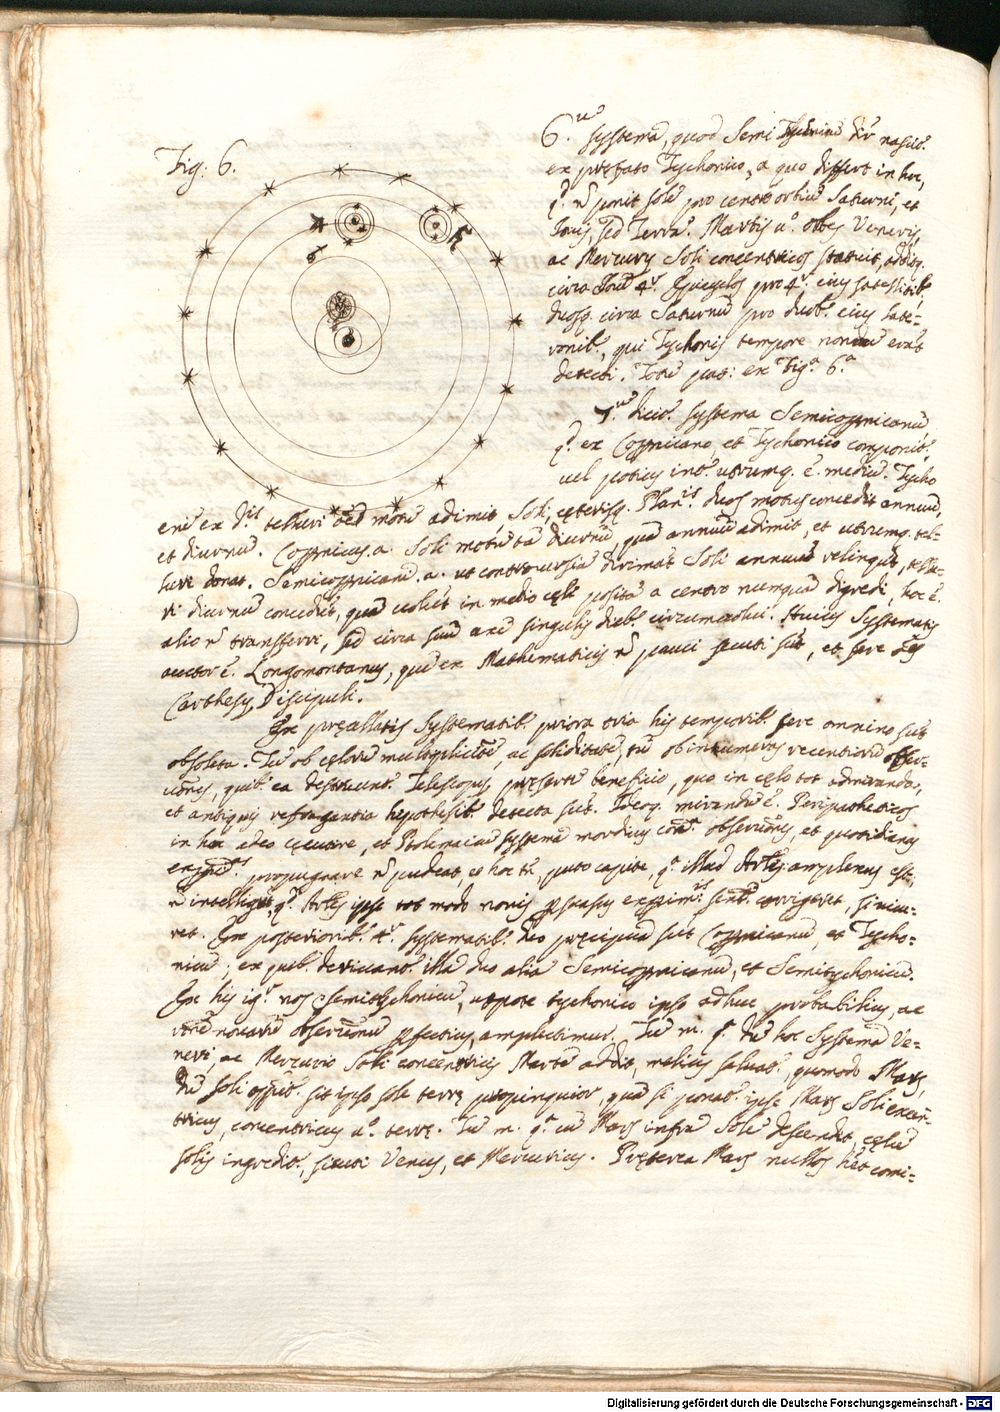 Fig: 6.
6.um Systema, quod Semi Tychonicũ dir̃ nascit.
ex pręfato Tychonico, a quo differt in hoc,
q.d ñ ponit Solẽ pro centro orbiũ Saturni, et
Jovis, sed Terrã. Martis u.o orbes Veneris,
ac Mercurij Soli concentricos statuit, additq.
circa Jovẽ 4.r Epicyclos pro 4.r eius satellitib.
duosq. circa Saturnũ pro duob. eius late=
ronib., qui Tychonis tempore nondũ erãt
detecti. Totũ pat: ex Fig.a 6.a
7.um dicit. Systema Semicoppnicanũ
q.d ex Coppnicano, et Tychonico componit.
vel potius int. utrumq. ẽ. mediũ. Tycho
enĩ ex d.is telluri oẽm motũ adimit, Soli, cęterisq. Plan.is duos motus concedit annuũ,
et diurnũ. Coppnicus a. Soli motũ tã diurnũ, quã annuũ adimit, et utrumq. tel=
luri donat. Semicoppnicanũ. a. ut controversiã dirimat Soli annuũ relinquit, tellu=
ri diurnũ concedit, quã volũt in medio cęli positã a centro numquã digredi, hoc ẽ.
alio ñ transferri, sed circa suũ axẽ singulis dieb. circumvolvi. Huius Systematis
auctor ẽ. Longomontanus, quẽ ex Mathematicis ñ pauci secuti sũt, et fere oẽs
Carthesij Discipuli.
Ex pręallatis Systematib. priora tria his temporib. fere omnino sũt
obsoleta. Tũ ob cęlorũ multiplicitẽ, ac soliditatẽ, tũ ob innumeras recentiorũ obser=
uões, quib. ea destruunt. Telescopij pręsertĩ beneficio, quo in cęlo tot admiranda,
et antiquis refragantia hypothesib. detecta sũt. Ideoq. mirandũ ẽ. Peripatheticos
in hac adeo cęcutire, et Ptolemaicũ Systema mordicus cont. observões, et quotidiana
propugnare ñ pudeat, ex hoc tñ, puto capite, q.a illud Arles amplexus est,
ñ intelligũt, q.d Arles ipse tot modo novis sent. corrigeret, si vive=
ret. Ex posteriorib. 4.r systematib. duo pręcipua sũt Coppnicanũ, et Tycho=
nicũ; ex quib. derivant. illa duo alia Semicoppnicanũ, et Semitychonicũ.
Ex his ig.r nos Semitychonicũ, utpote tychonico ipso adhuc probabilius, ac
novarũ observõnũ pfectius, amplectimur. Tũ m. q. dũ hoc Systema Ve=
neri, ac Mercurio Soli concentricis Martẽ addit, melius salvat., quomodo Mars,
dũ Soli oppõit. sit ipso Sole terrę propinquior, quã si ponat. ipse Mars Soli excen=
tricus, concentricus u.o terrę. Tũ m. q.a cũ Mars infra Solẽ descendit, cęlũ
Solis ingredit., sicuti Venus, et Mercurius. Pręterea Mars nullos hẽt comi=
Digitalisierung gefördert durch die Deutsche Forschungsgemeinschaft - DFG